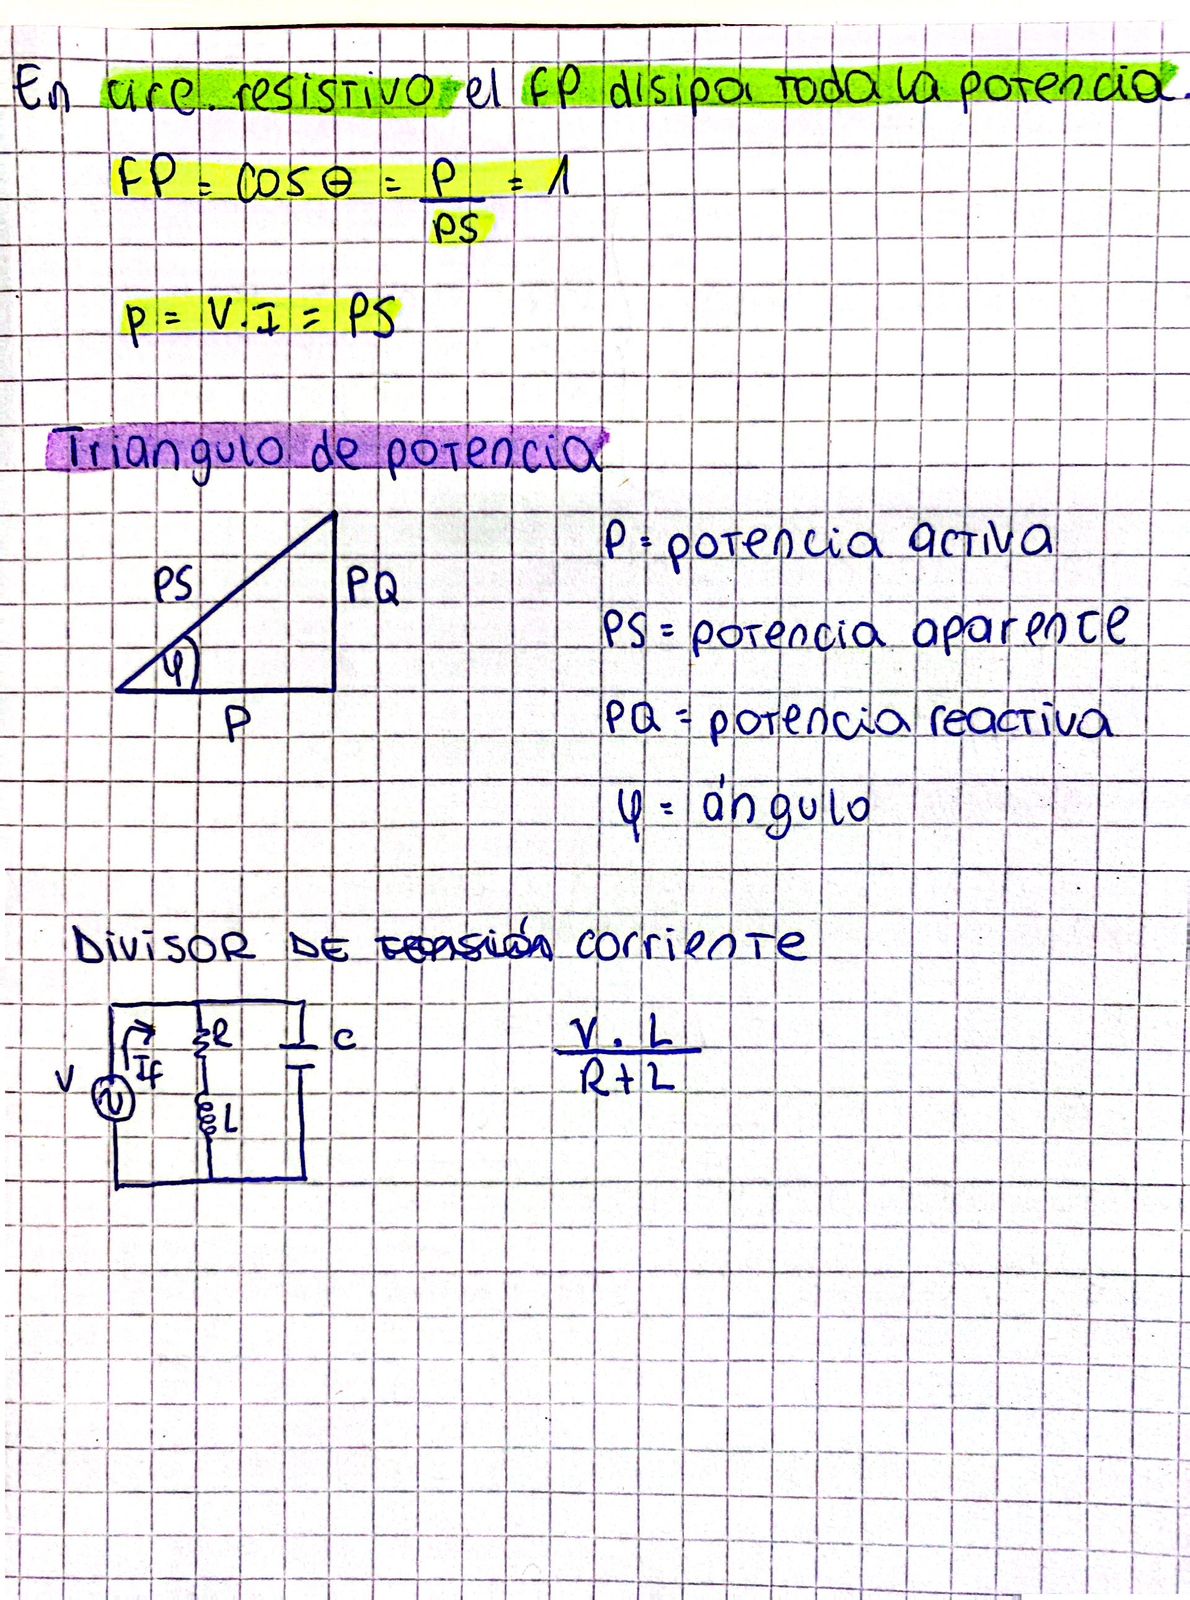 En circ. resistivo el FP disipa toda la potencia.
FP = cos θ = P / PS = 1
P = V.I = PS
Triangulo de potencia
PS
PQ
φ
P
P = potencia activa
PS = potencia aparente
PQ = potencia reactiva
φ = ángulo
DIVISOR DE tensión corriente
V
If
R
L
C
V . L / R + L